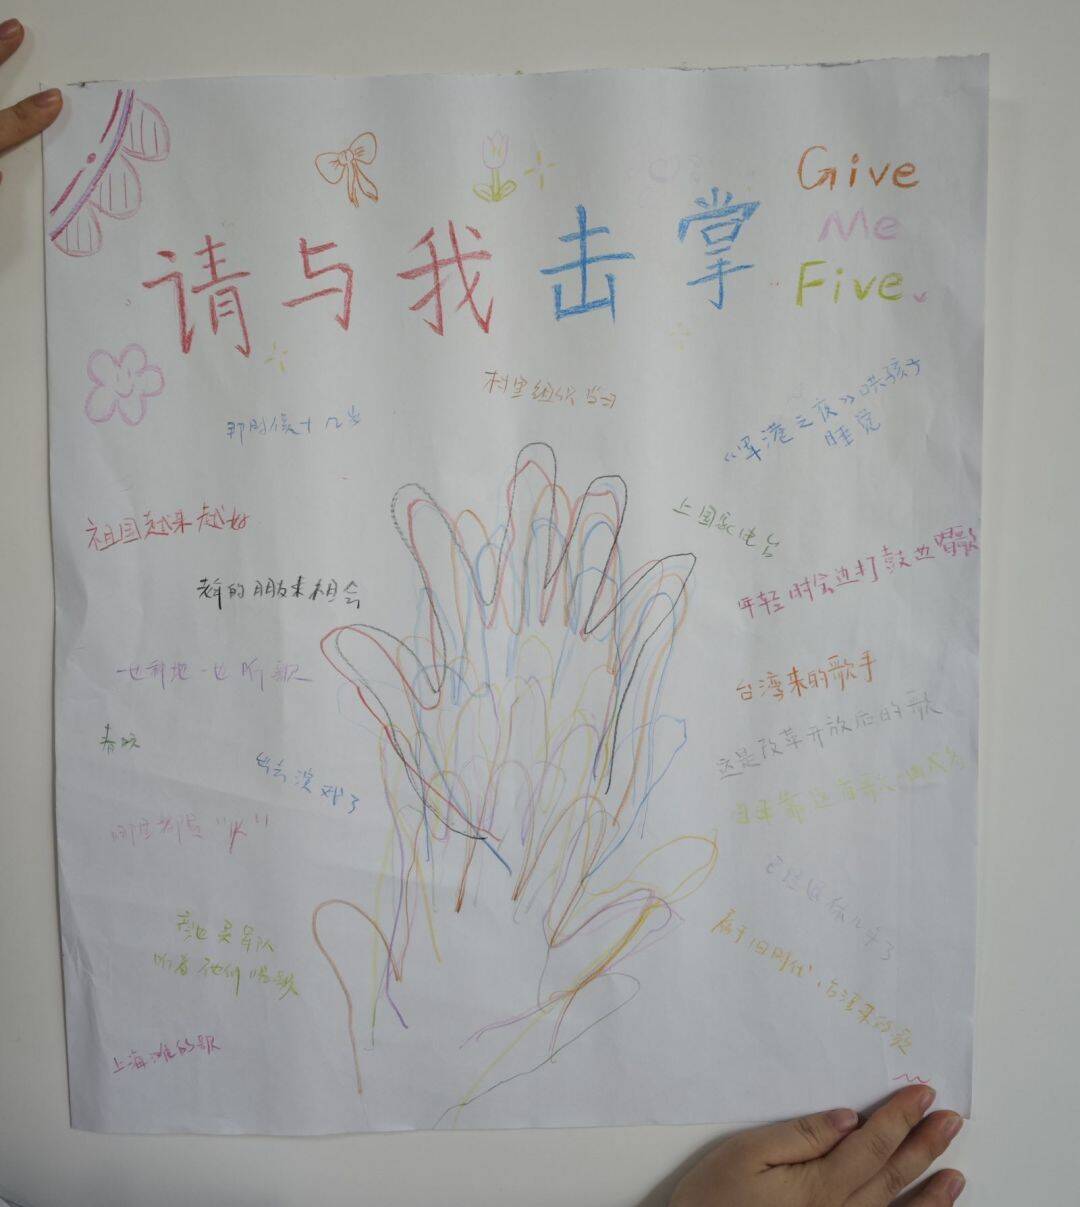 Give
Me
Five
请与我击掌
村里组织学习
那时候十几岁
《军港之夜》哄孩子
睡觉
祖国越来越好
上国家电台
年轻时会边打鼓边唱歌
老年的朋友来相会
一边种地一边听歌
台湾来的歌手
这是改革开放后的歌
春晚
出去演戏了
听着他们唱歌
属于旧时代,台湾来的歌
上海滩的歌